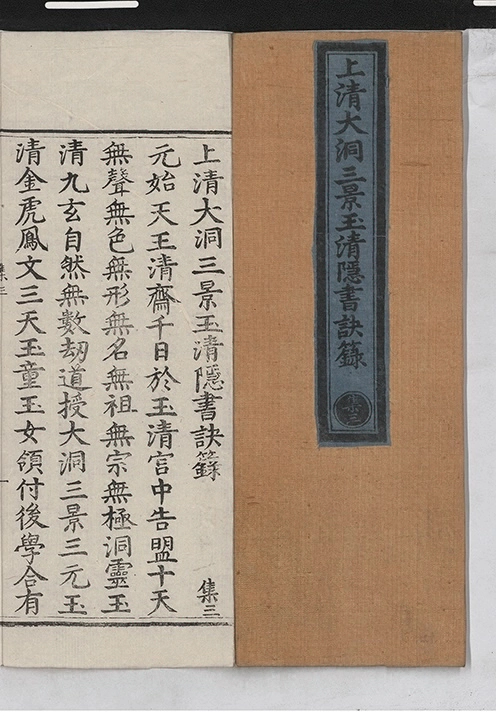 上清大洞三景玉清隱書訣籙
集三
上清大洞三景玉清隱書訣籙 集三
元始天王清齋千日於玉清宮中告盟十天
無聲無色無形無名無祖無宗無極洞靈玉
清九玄自然無數劫道授大洞三景三元玉
清金虎鳳文三天玉童玉女領付後學合有
集三
一